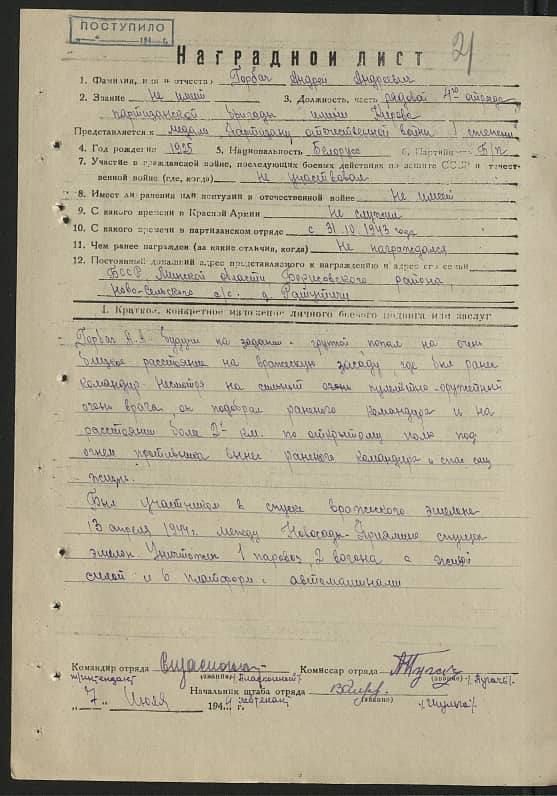 ПОСТУПИЛО
194 г.
21
Наградной лист
1. Фамилия, имя и отчество Горбач Андрей Андреевич
2. Звание Не имеет 3. Должность, часть рядовой 4го отряда
партизанской бригады имени Кирова
Представляется к медали Партизану отечественной войны I степени
4. Год рождения 1925 5. Национальность Белорус 6. Партийн. Б/п
7. Участие в гражданской войне, последующих боевых действиях по защите СССР и отечест-
венной войне (где, когда) Не участвовал
8. Имеет ли ранения или контузии в отечественной войне Не имеет
9. С какого времени в Красной Армии Не служил
10. С какого времени в партизанском отряде с 31.10.1943 года
11. Чем ранее награжден (за какие отличия, когда) Не награждался
12. Постоянный домашний адрес представляемого к награждению и адрес его семьи
БССР Минской области, Борисовского района,
Ново-Сельского с/с. д.
I. Краткое, конкретное изложение личного боевого подвига или заслуг
Горбач А.А. Будучи на задании группой попал на очень
близкое расстояние на вражескую засаду где был ранен
командир. Несмотря на сильный огонь пулеметно-оружейный
огонь врага он подобрал раненого командира и на
расстоянии более 2х км. по открытому полю под
огнем противника вынес раненого командира и спас ему
жизнь.
Был участником в спуске вражеского эшелона
13 апреля 1944г. между Новосады-Приямино спущен
эшелон. Уничтожен 1 паровоз 2 вагона с живой
силой и 6 платформ с автомашинами.
Командир отряда Комиссар отряда
(звание) (звание) /Пугач/
Начальник штаба отряда
„7“ Июля 1944 (звание)